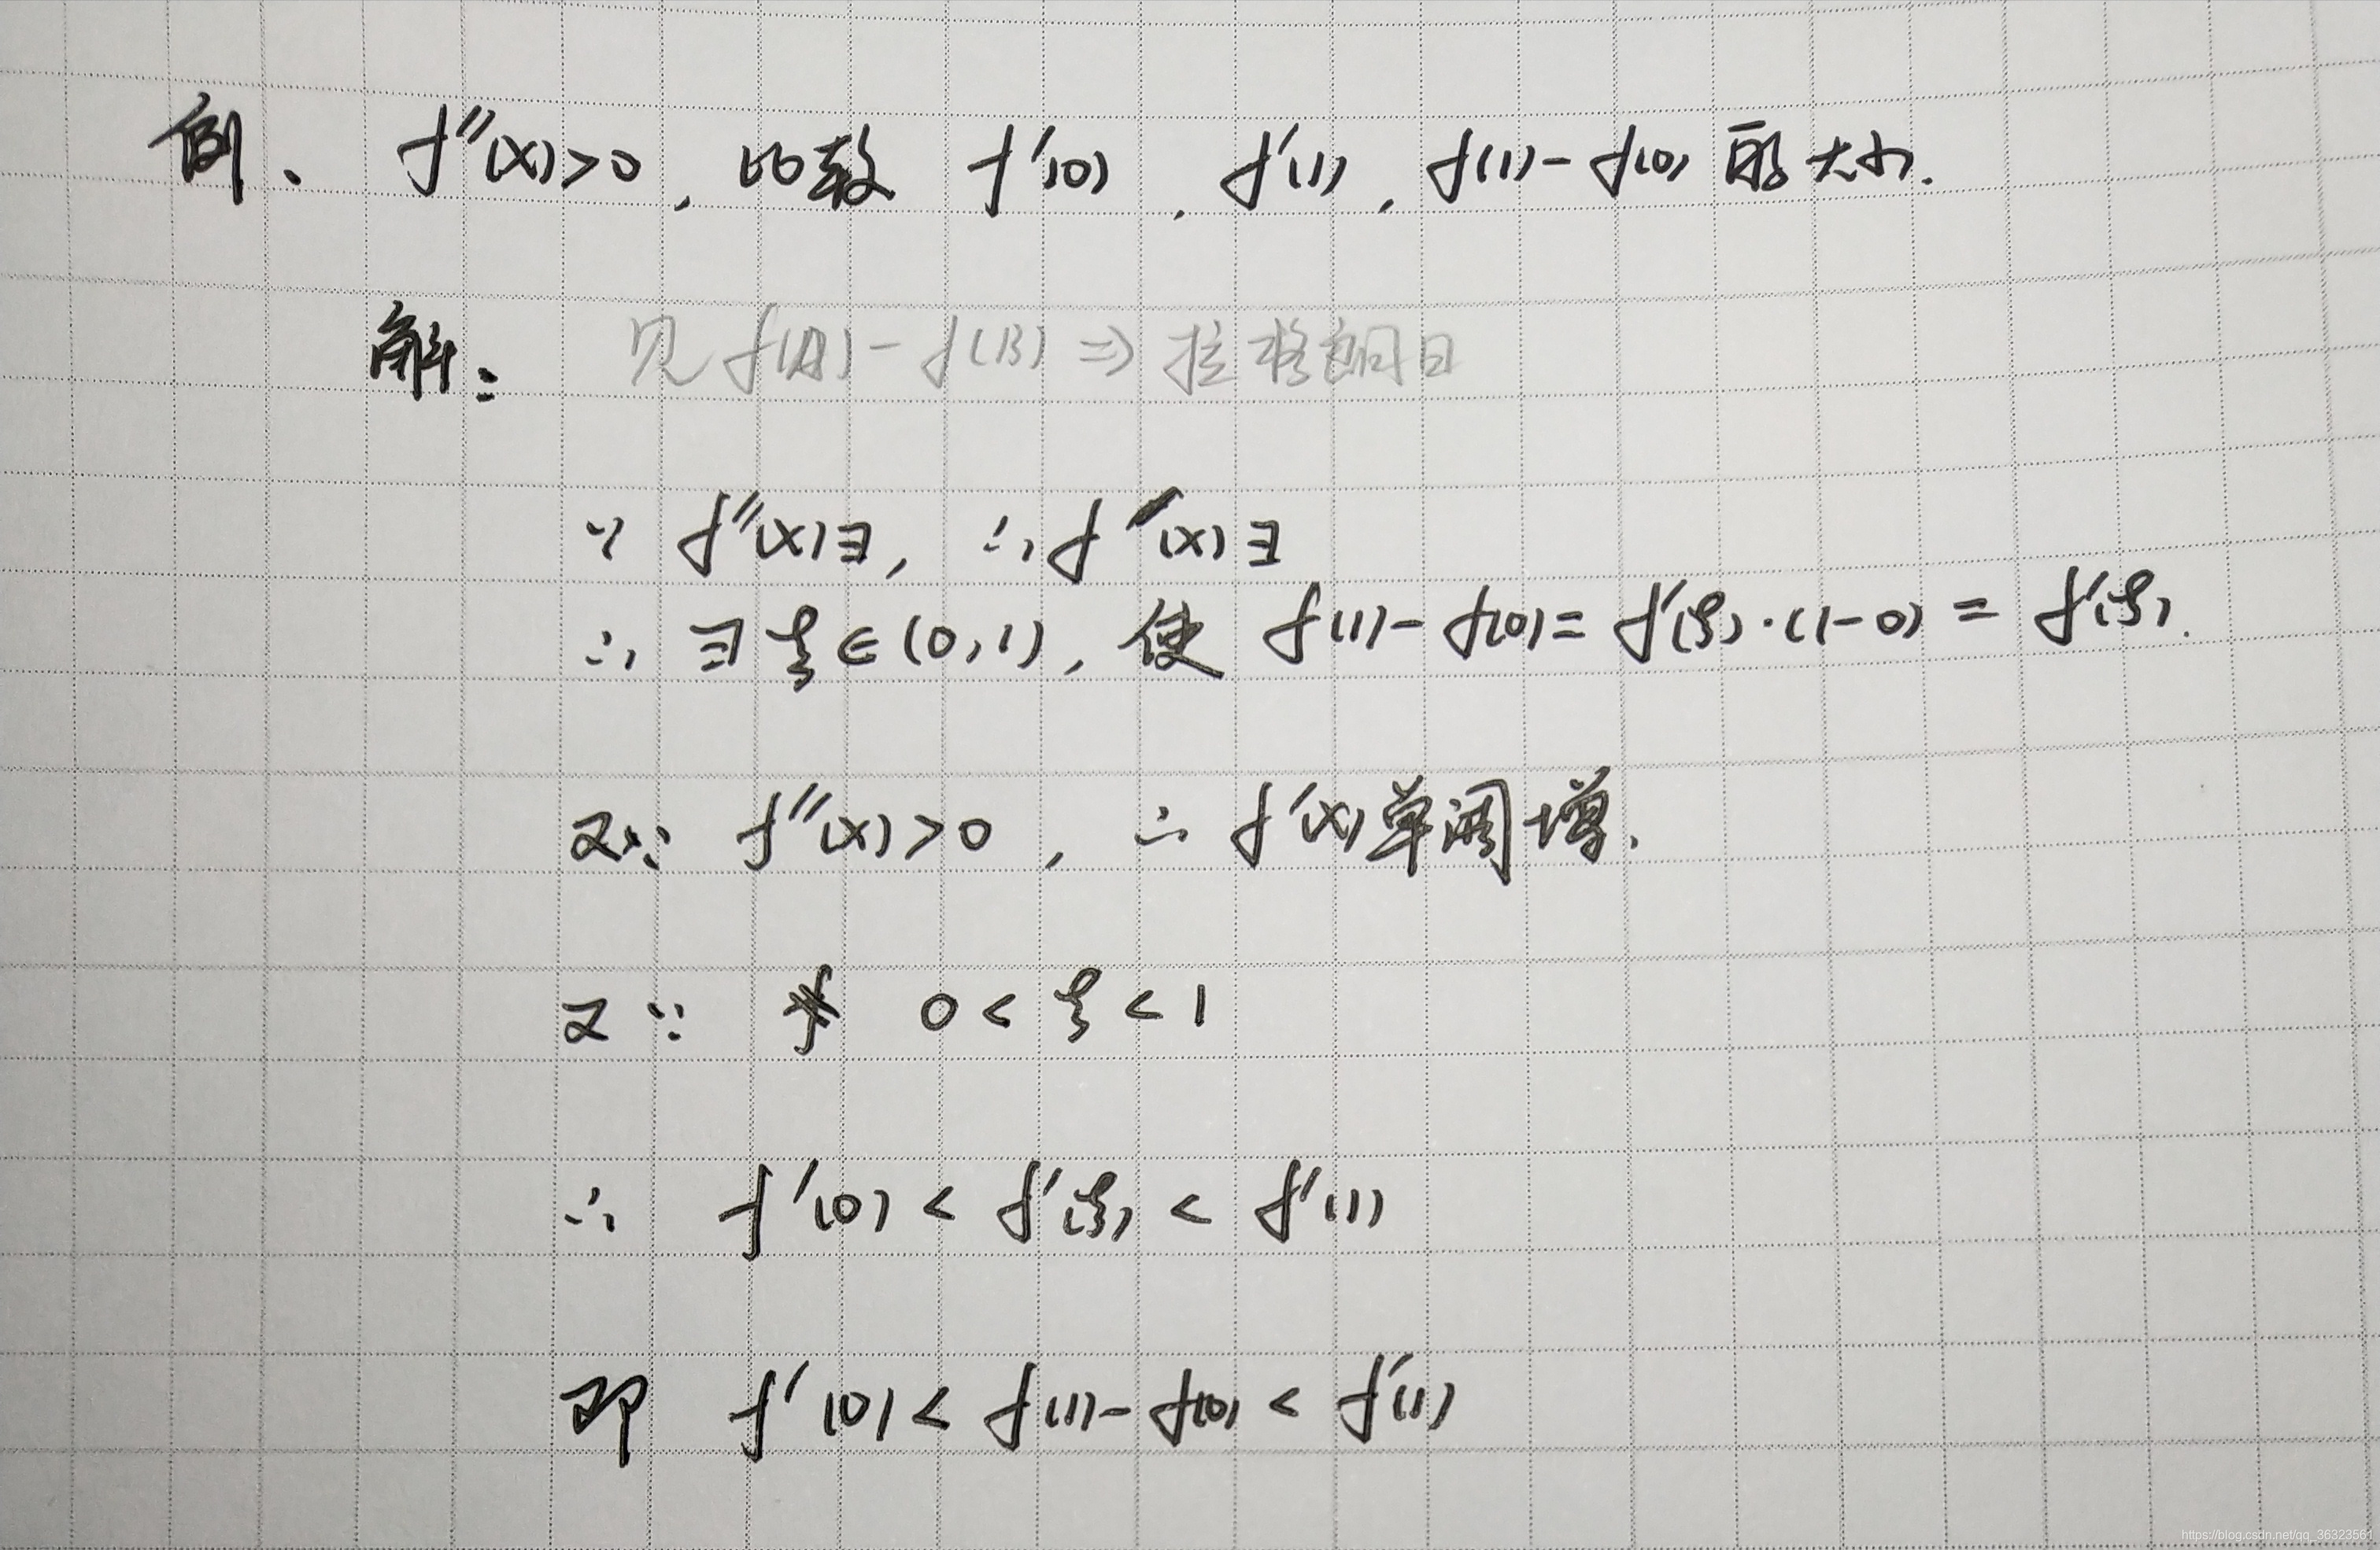 例、 f''(x)>0, 比较 f'(0), f'(1), f(1)-f(0) 的大小.
解: 见 f(A)-f(B) ⇒ 拉格朗日
∵ f''(x)∃, ∴ f'(x)∃
∴ ∃ξ∈(0,1), 使 f(1)-f(0)= f'(ξ)·(1-0) = f'(ξ).
又∵ f''(x)>0, ∴ f'(x)单调增.
又∵ 0<ξ<1
∴ f'(0) < f'(ξ) < f'(1)
即 f'(0) < f(1)-f(0) < f'(1)
https://blog.csdn.net/qq_36323561